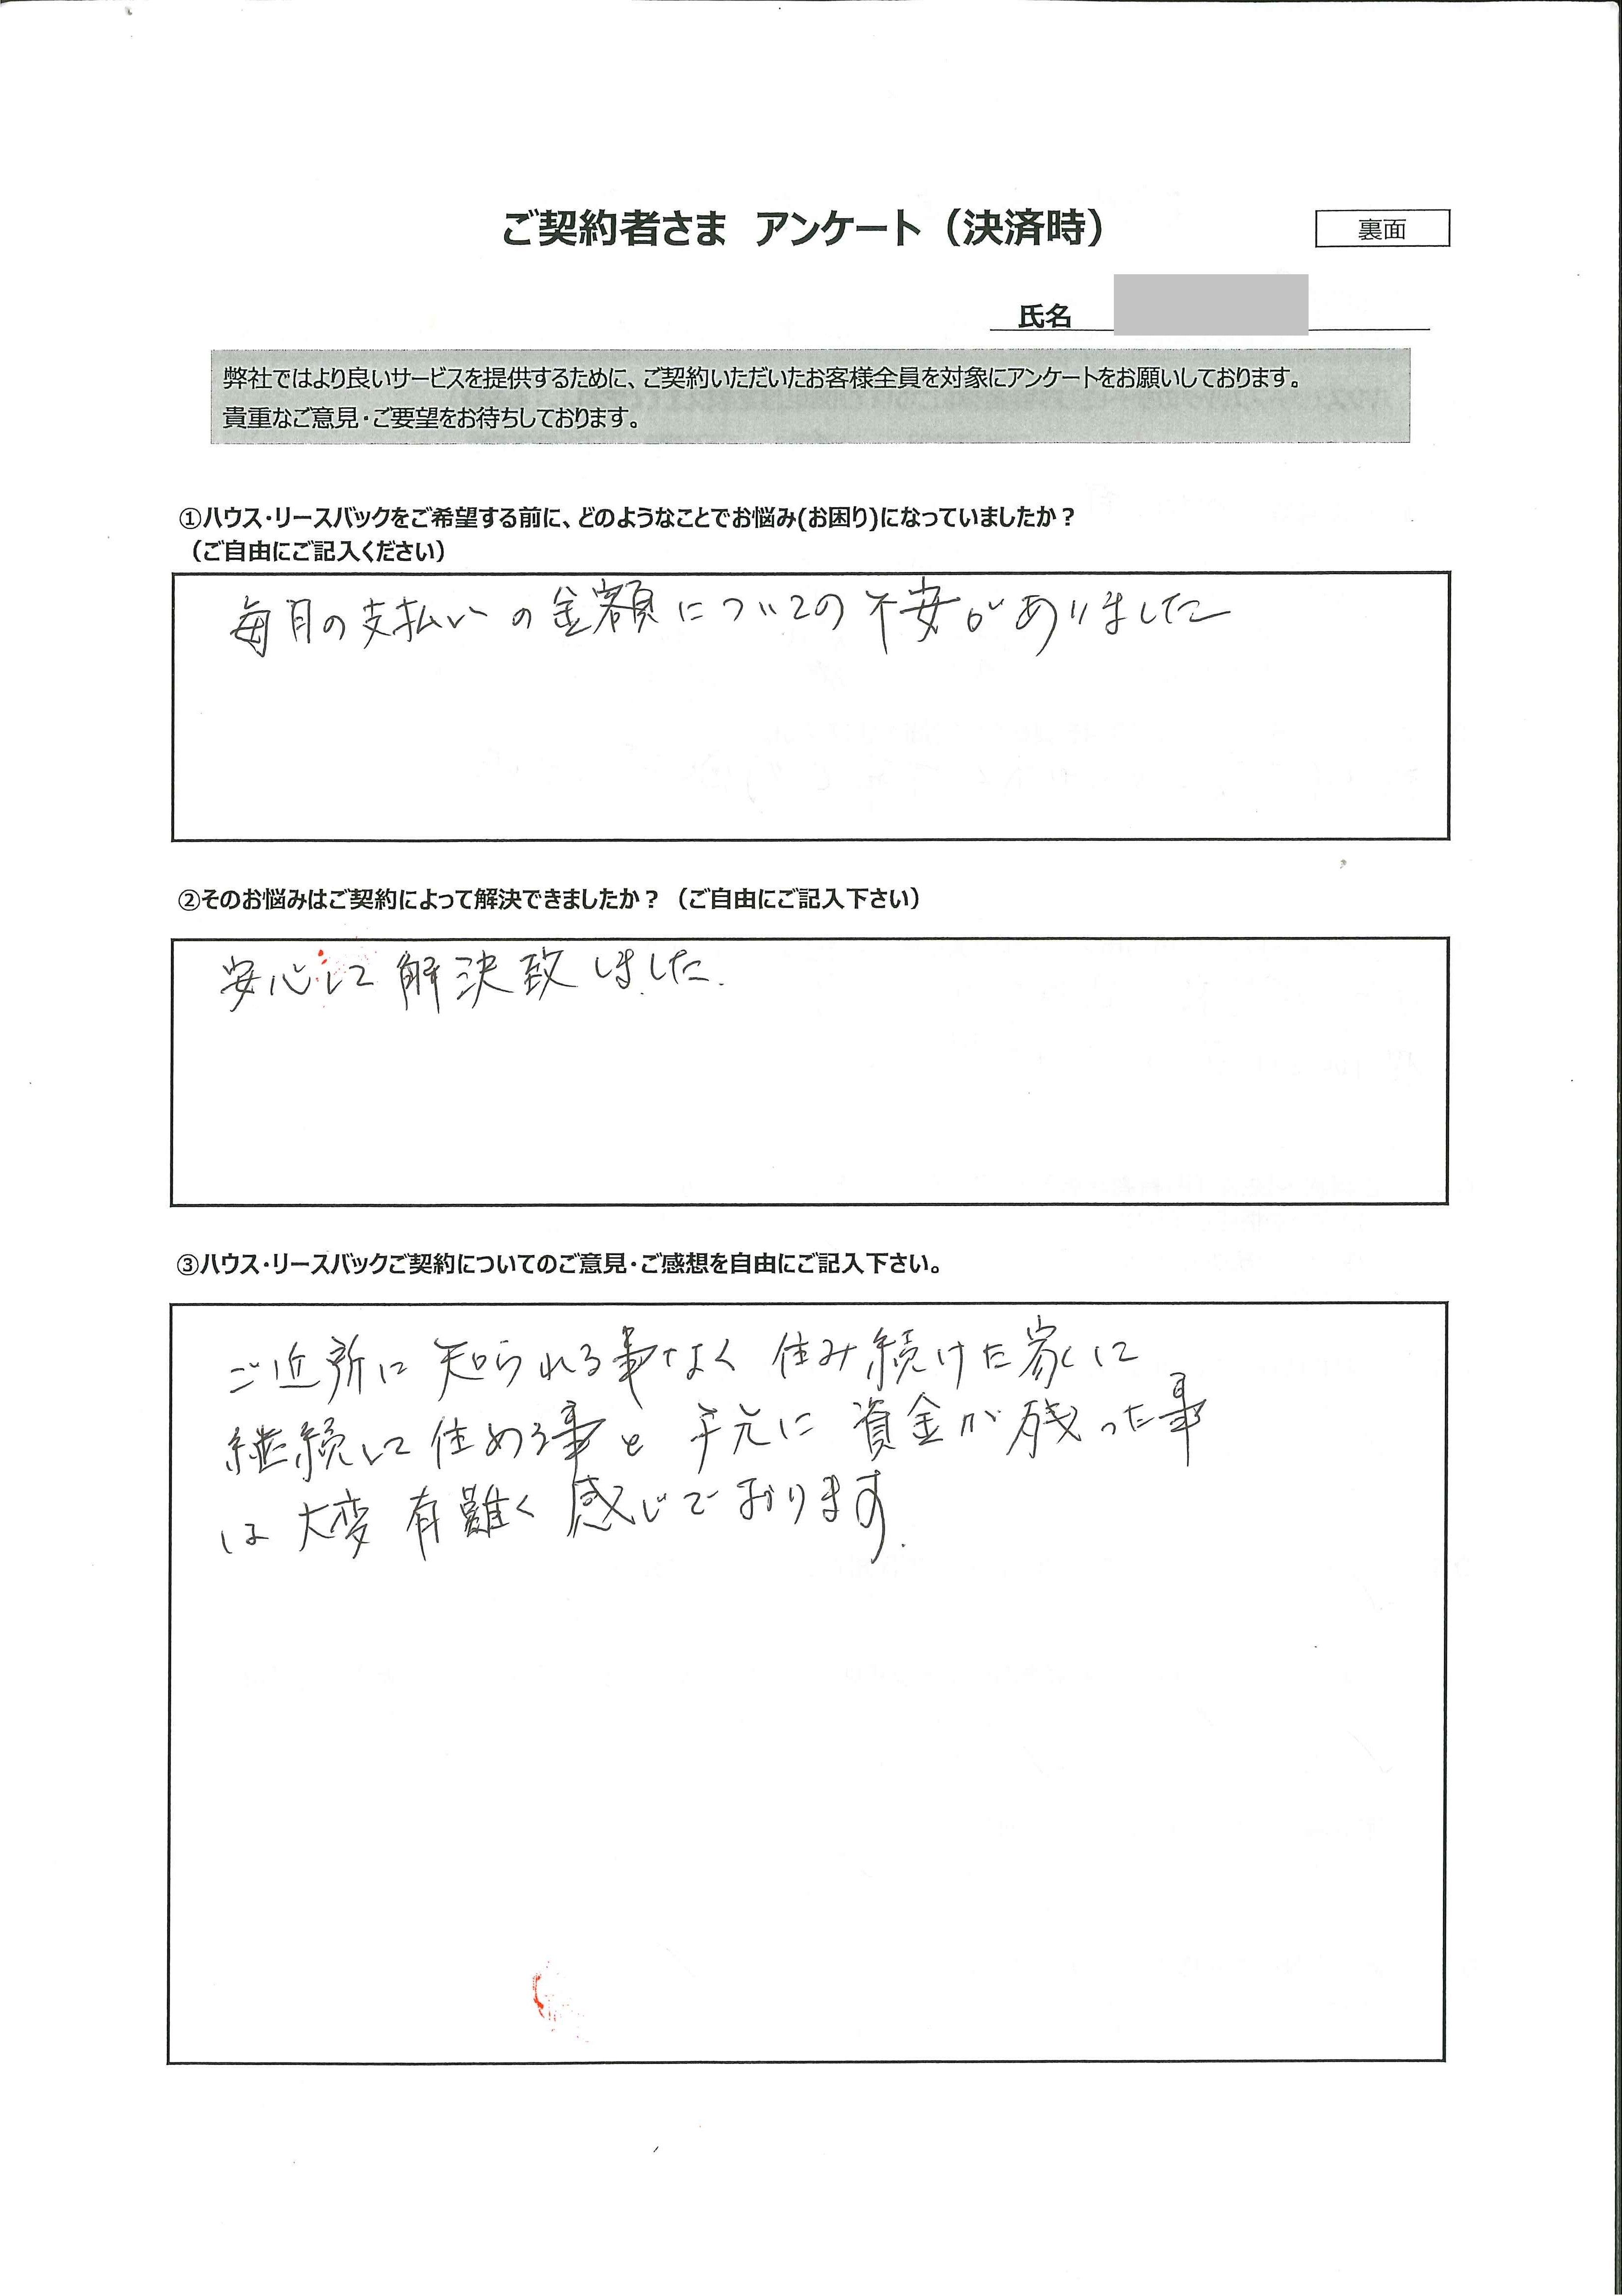 ご契約者さま アンケート（決済時）
裏面
氏名
弊社ではより良いサービスを提供するために、ご契約いただいたお客様全員を対象にアンケートをお願いしております。
貴重なご意見・ご要望をお待ちしております。
①ハウス・リースバックをご希望する前に、どのようなことでお悩み(お困り)になっていましたか？
（ご自由にご記入ください）
毎月の支払いの金額についての不安がありました
②そのお悩みはご契約によって解決できましたか？（ご自由にご記入下さい）
安心して解決致しました.
③ハウス・リースバックご契約についてのご意見・ご感想を自由にご記入下さい。
ご近所に知られる事なく住み続けた家に
継続して住める事と手元に資金が残った事
は大変有難く感じております.